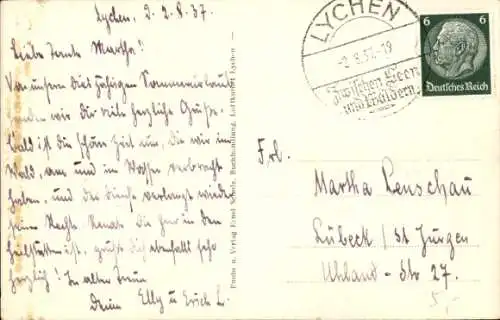 Lychen, 2.8.37.
Liebe Tante Martha!
Von unserem diesjährigen Sommerurlaub
senden wir dir viele herzliche Grüße.
Bald ist die schöne Zeit aus, die wir im
Wald, am und im Wasser verbracht
haben, und der Dienst verlangt wieder
seine Rechte. Renate die hier in den
Heilstätten ist, grüßt dich ebenfalls sehr
herzlich! In alter Treue
Deine Elly u Erich L.
Photo u. Verlag Ernst Schulz, Buchhandlung, Luftkurort Lychen
LYCHEN
-2.8.37.-19
Zwischen Seen
und Wäldern
6 6
Deutsches Reich
Frl.
Martha Lenschau
Lübeck / St Jürgen
Uhland-Str 27.
5,-